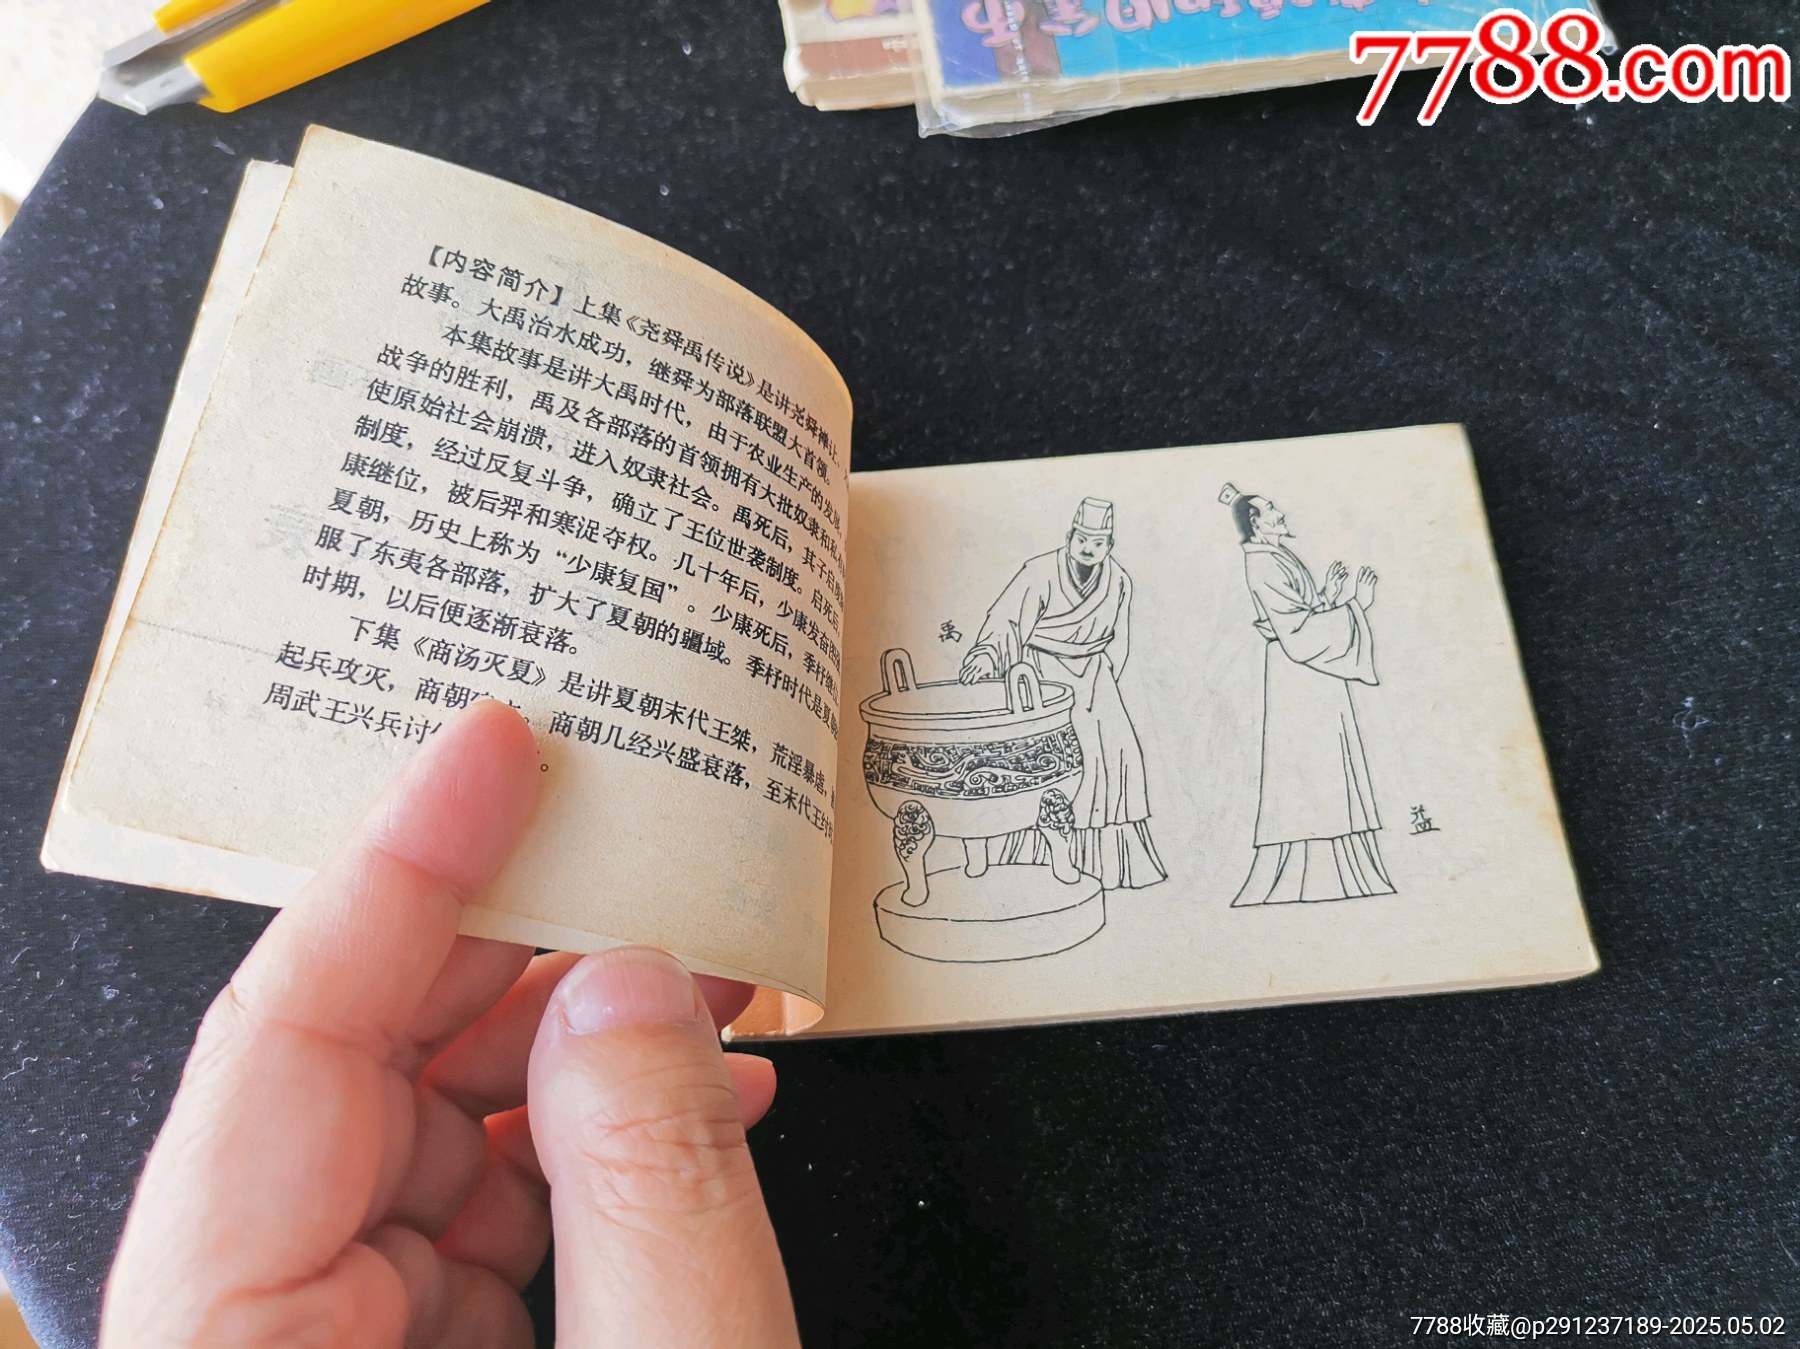 7788.com
【内容简介】上集《尧舜禹传说》是讲尧舜禅让，
故事。大禹治水成功，继舜为部落联盟大首领。
本集故事是讲大禹时代，由于农业生产的发展，
战争的胜利，禹及各部落的首领拥有大批奴隶和私
使原始社会崩溃，进入奴隶社会。禹死后，其子启
制度，经过反复斗争，确立了王位世袭制度。启死后，
康继位，被后羿和寒浞夺权。几十年后，少康发奋图强
夏朝，历史上称为“少康复国”。少康死后，季杼继位
服了东夷各部落，扩大了夏朝的疆域。季杼时代是夏朝
时期，以后便逐渐衰落。
下集《商汤灭夏》是讲夏朝末代王桀，荒淫暴虐，
起兵攻灭，商朝 商朝几经兴盛衰落，至末代王纣
周武王兴兵讨 。
禹
益
7788收藏@p291237189-2025.05.02